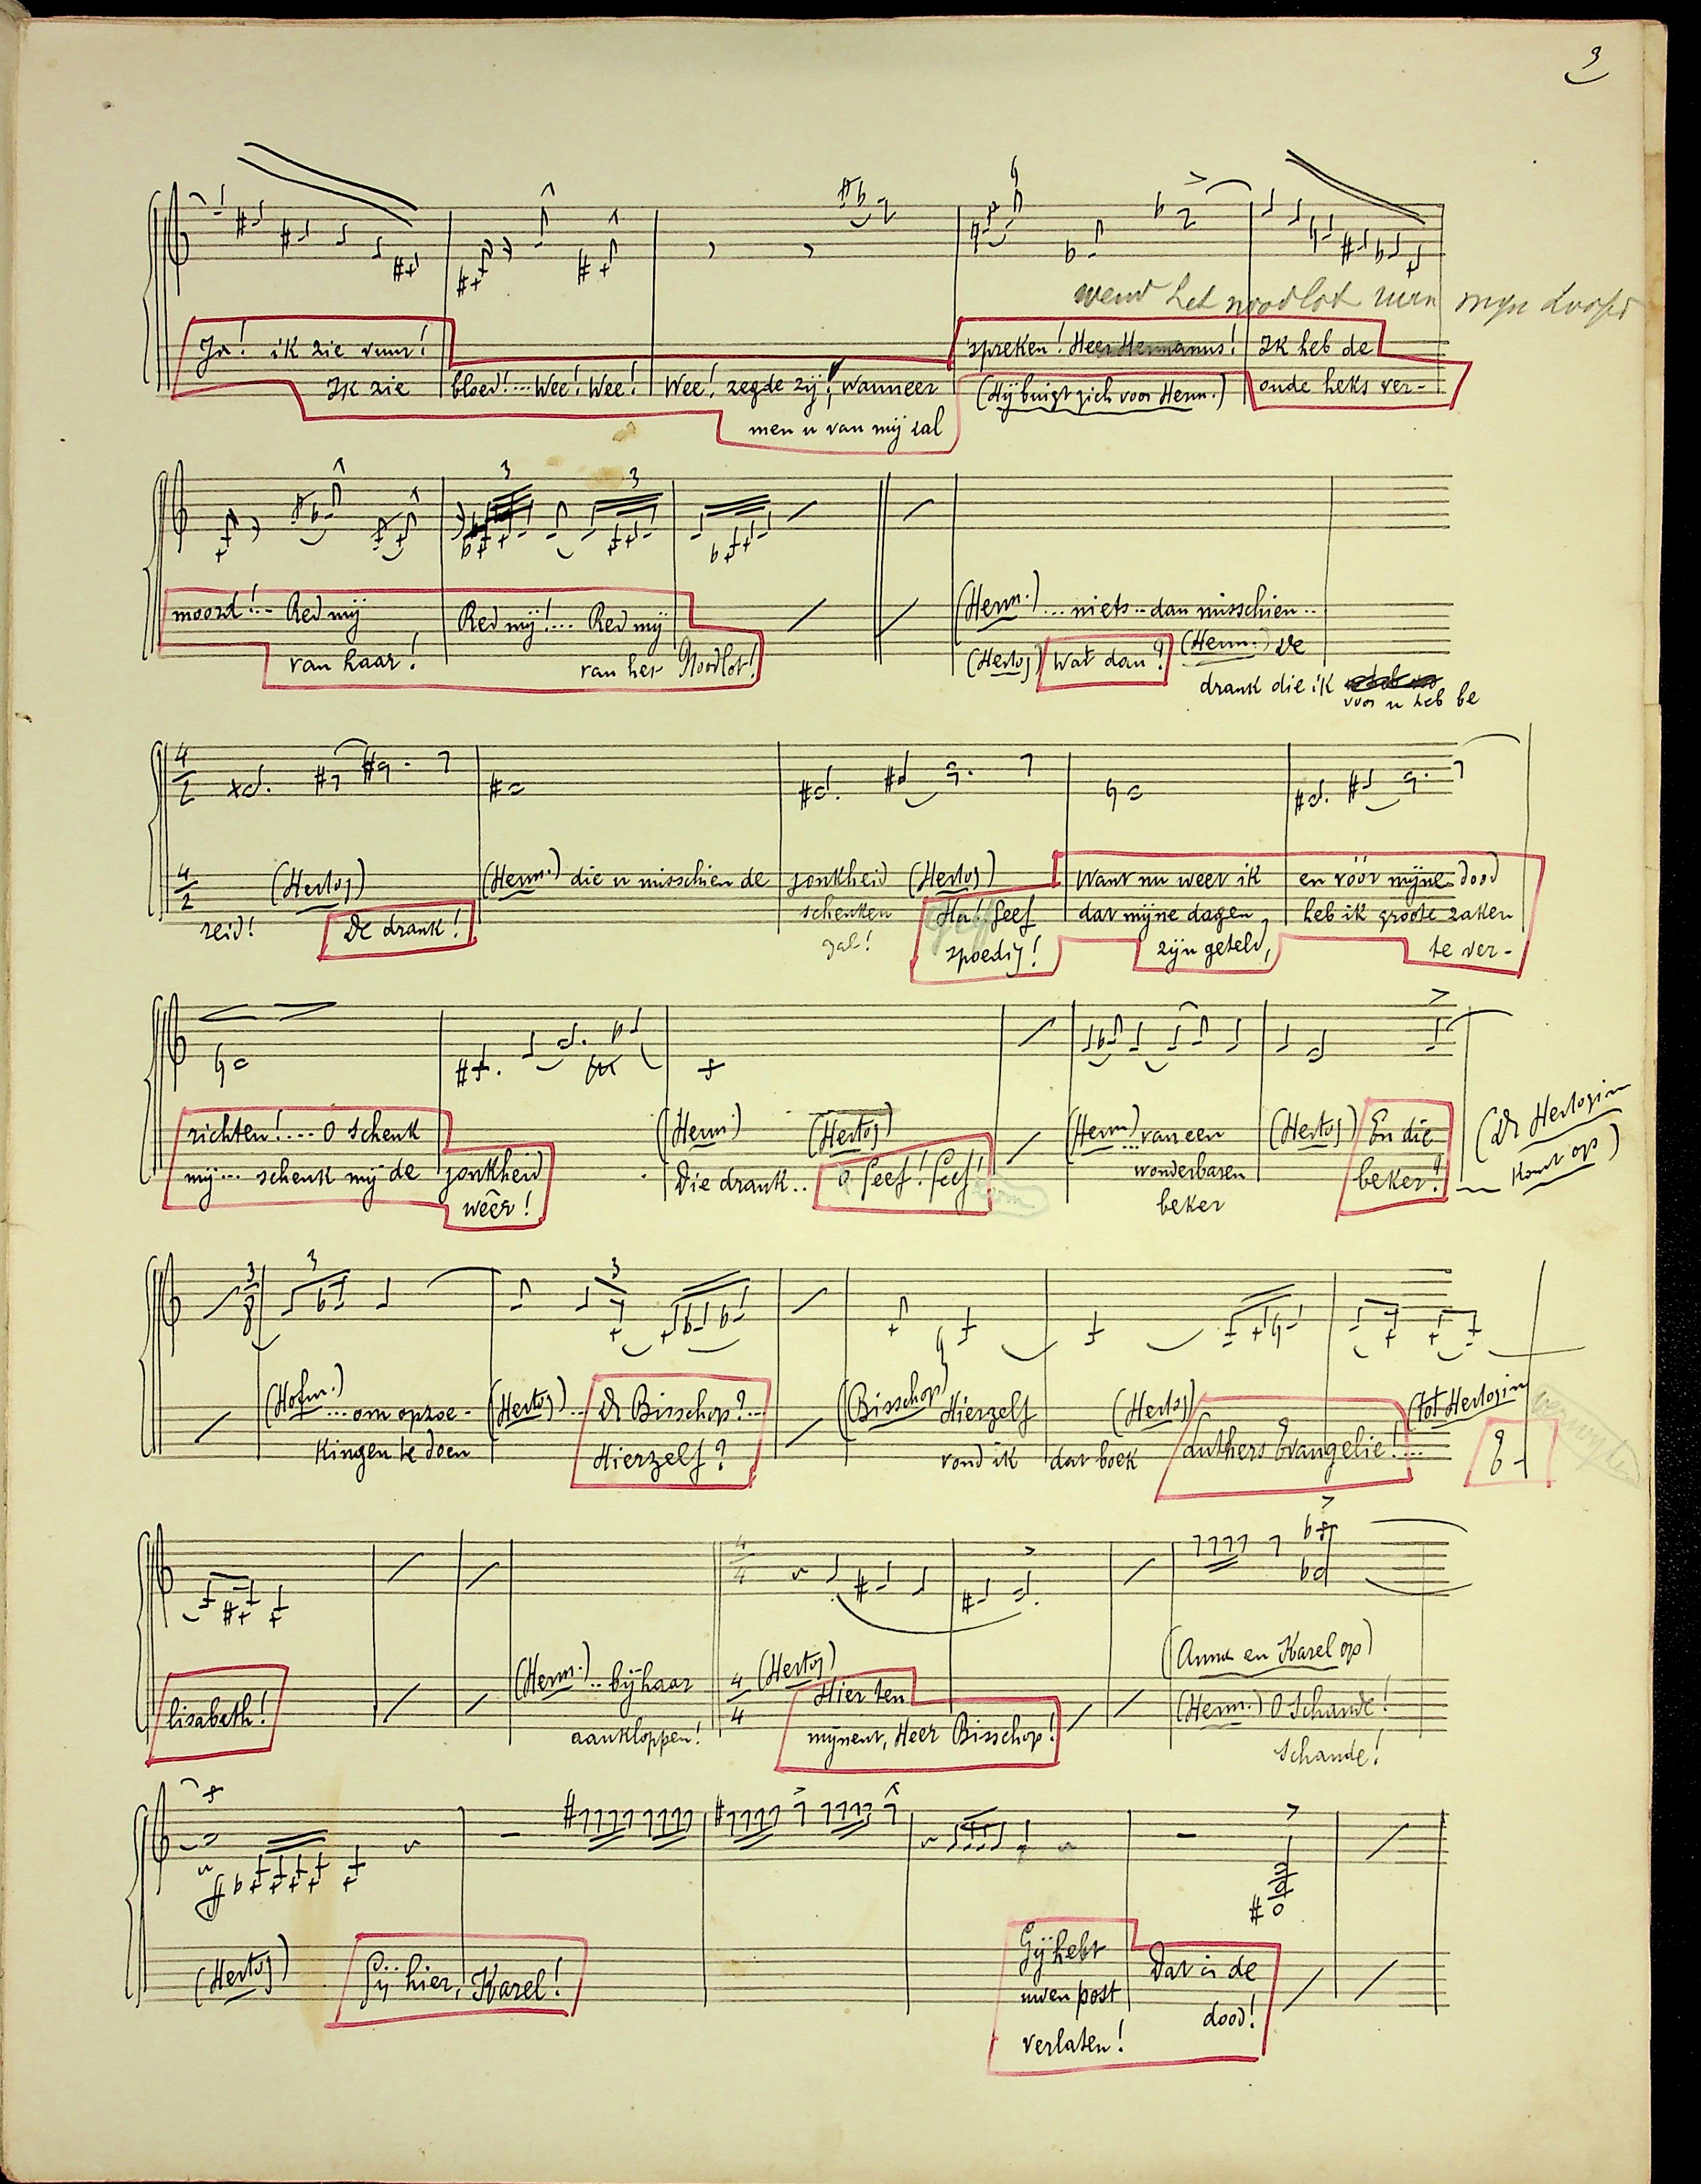 3
wend het noodlot van mijn hoofd
Ja! ik zie vuur!
Ik zie bloed!... Wee! Wee! Wee! zegde zij, wanneer
men u van mij zal
spreken! Heer Hermanus! Ik heb de
(Hij buigt zich voor Herm.) oude heks ver-
moord!... Red mij Red mij!... Red mij
van haar! van het Noodlot!
(Herm.) ... niets .. dan misschien ..
(Hertog) Wat dan? (Herm.) De
drank die ik
voor u heb be
4/2
reid! (Hertog) De drank!
(Herm.) die u misschien de jonkheid
schenken
zal!
(Hertog)
Ha! Geef
spoedig!
Want nu weet ik en vóór mijne dood
dat mijne dagen heb ik groote zaken
zijn geteld, te ver-
richten!... O schenk
mij... schenk mij de jonkheid
wêer!
(Herm) (Hertog)
Die drank.. o Geef! Geef!
(Herm) van een
wonderbaren
beker
(Hertog) En die
beker?
(De Hertogin
komt op)
(Hofm.) ... om opzoe-
kingen te doen
(Hertog)... De Bisschop?...
Hierzelf?
(Bisschop) Hierzelf
vond ik dat boek
(Hertog)
Luthers Evangelie!...
(tot Hertogin
E-
lisabeth!
(Herm.) .. bij haar
aankloppen!
4/4 (Hertog)
Hier ten
mijnent, Heer Bisschop!
(Anna en Karel op)
(Herm.) O Schande!
Schande!
(Hertog) Gij hier, Karel!
Gij hebt
uwen post
verlaten!
Dat is de
dood!